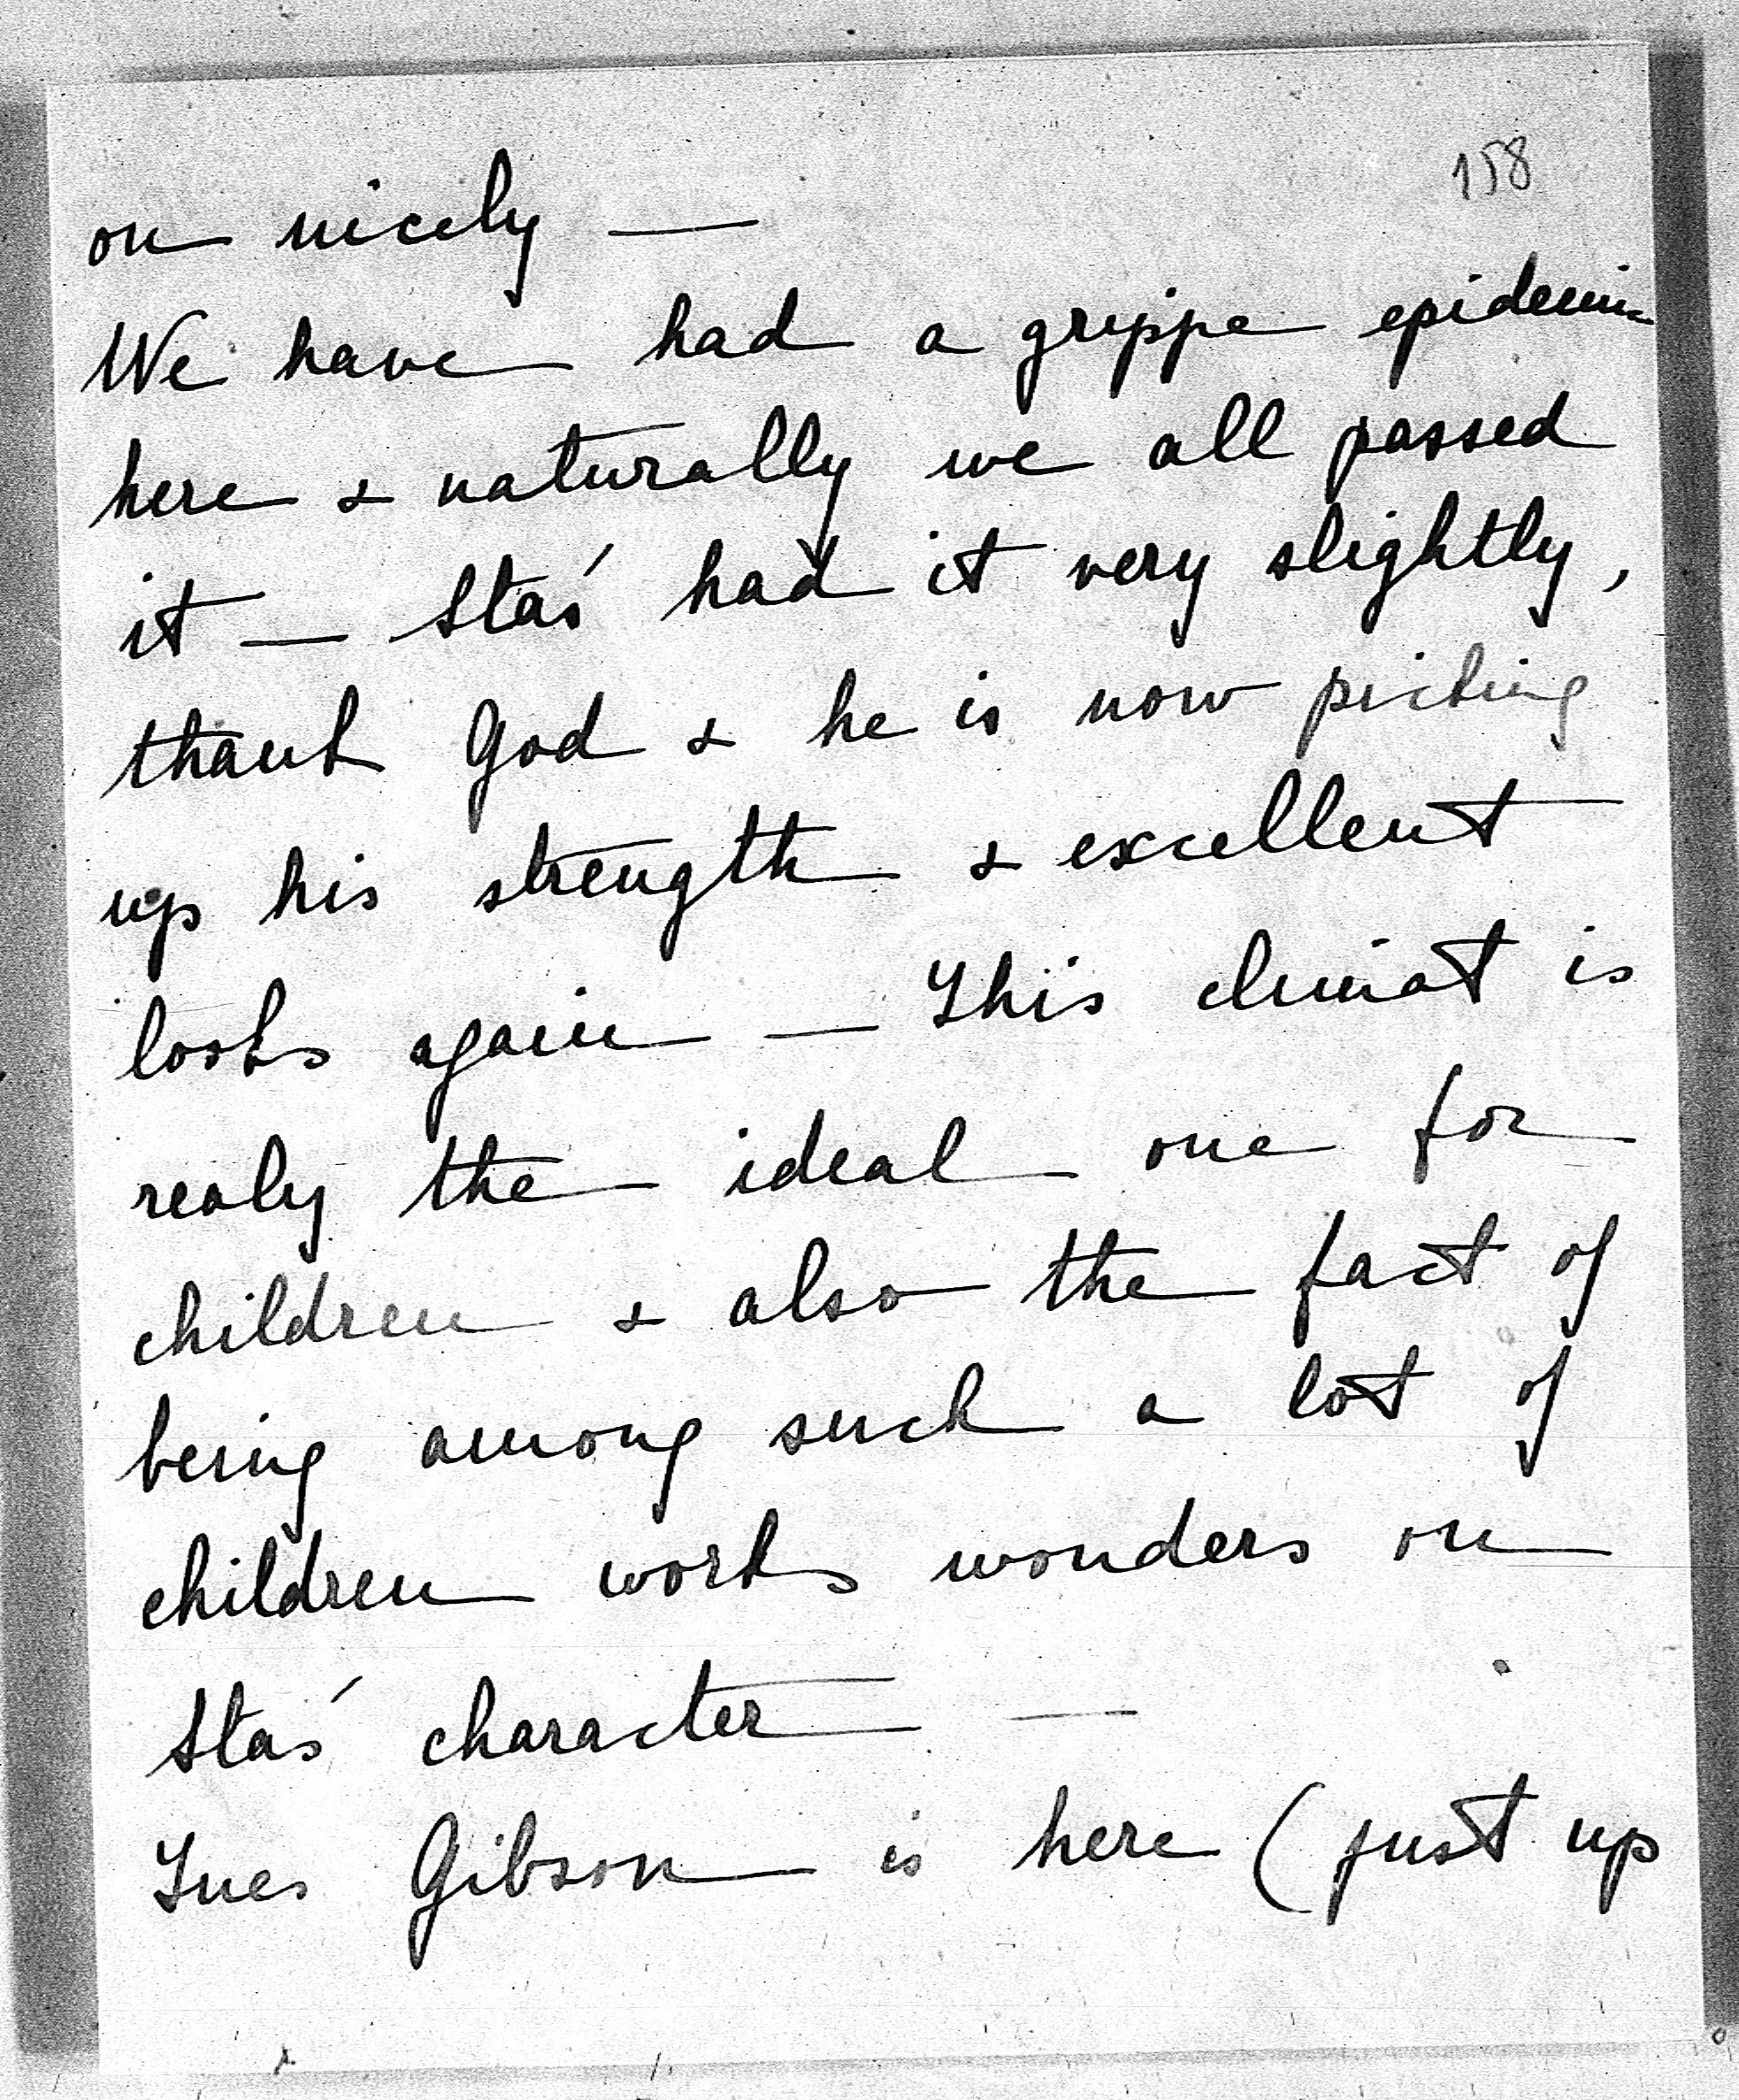 158
on nicely —
We have had a grippe epidemic
here & naturally we all passed
it — Staś had it very slightly,
thank God & he is now picking
up his strength & excellent
looks again — This climat is
realy the ideal one for
children & also the fact of
being among such a lot of
children works wonders on
Staś character —
Ines Gibson is here (just up